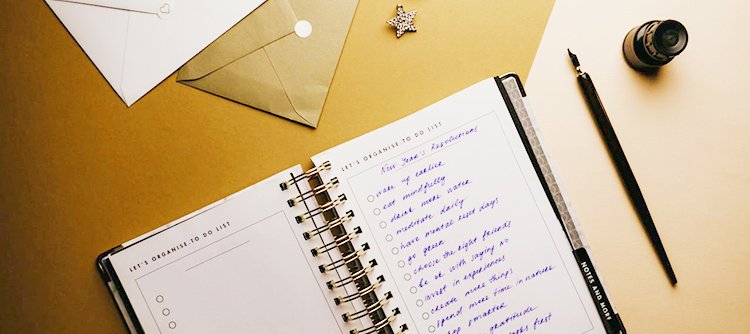 LET'S ORGANISE-TO DO LIST
LET'S ORGANISE-TO DO LIST
New Year's Resolutions
wake up earlier
eat mindfully
drink more water
meditate daily
have mental reset days
go green
choose the right friends
be ok with saying No
invest in experiences
create more things
spend more time in nature
smarter
gratitude
first
NOTES AND MORE